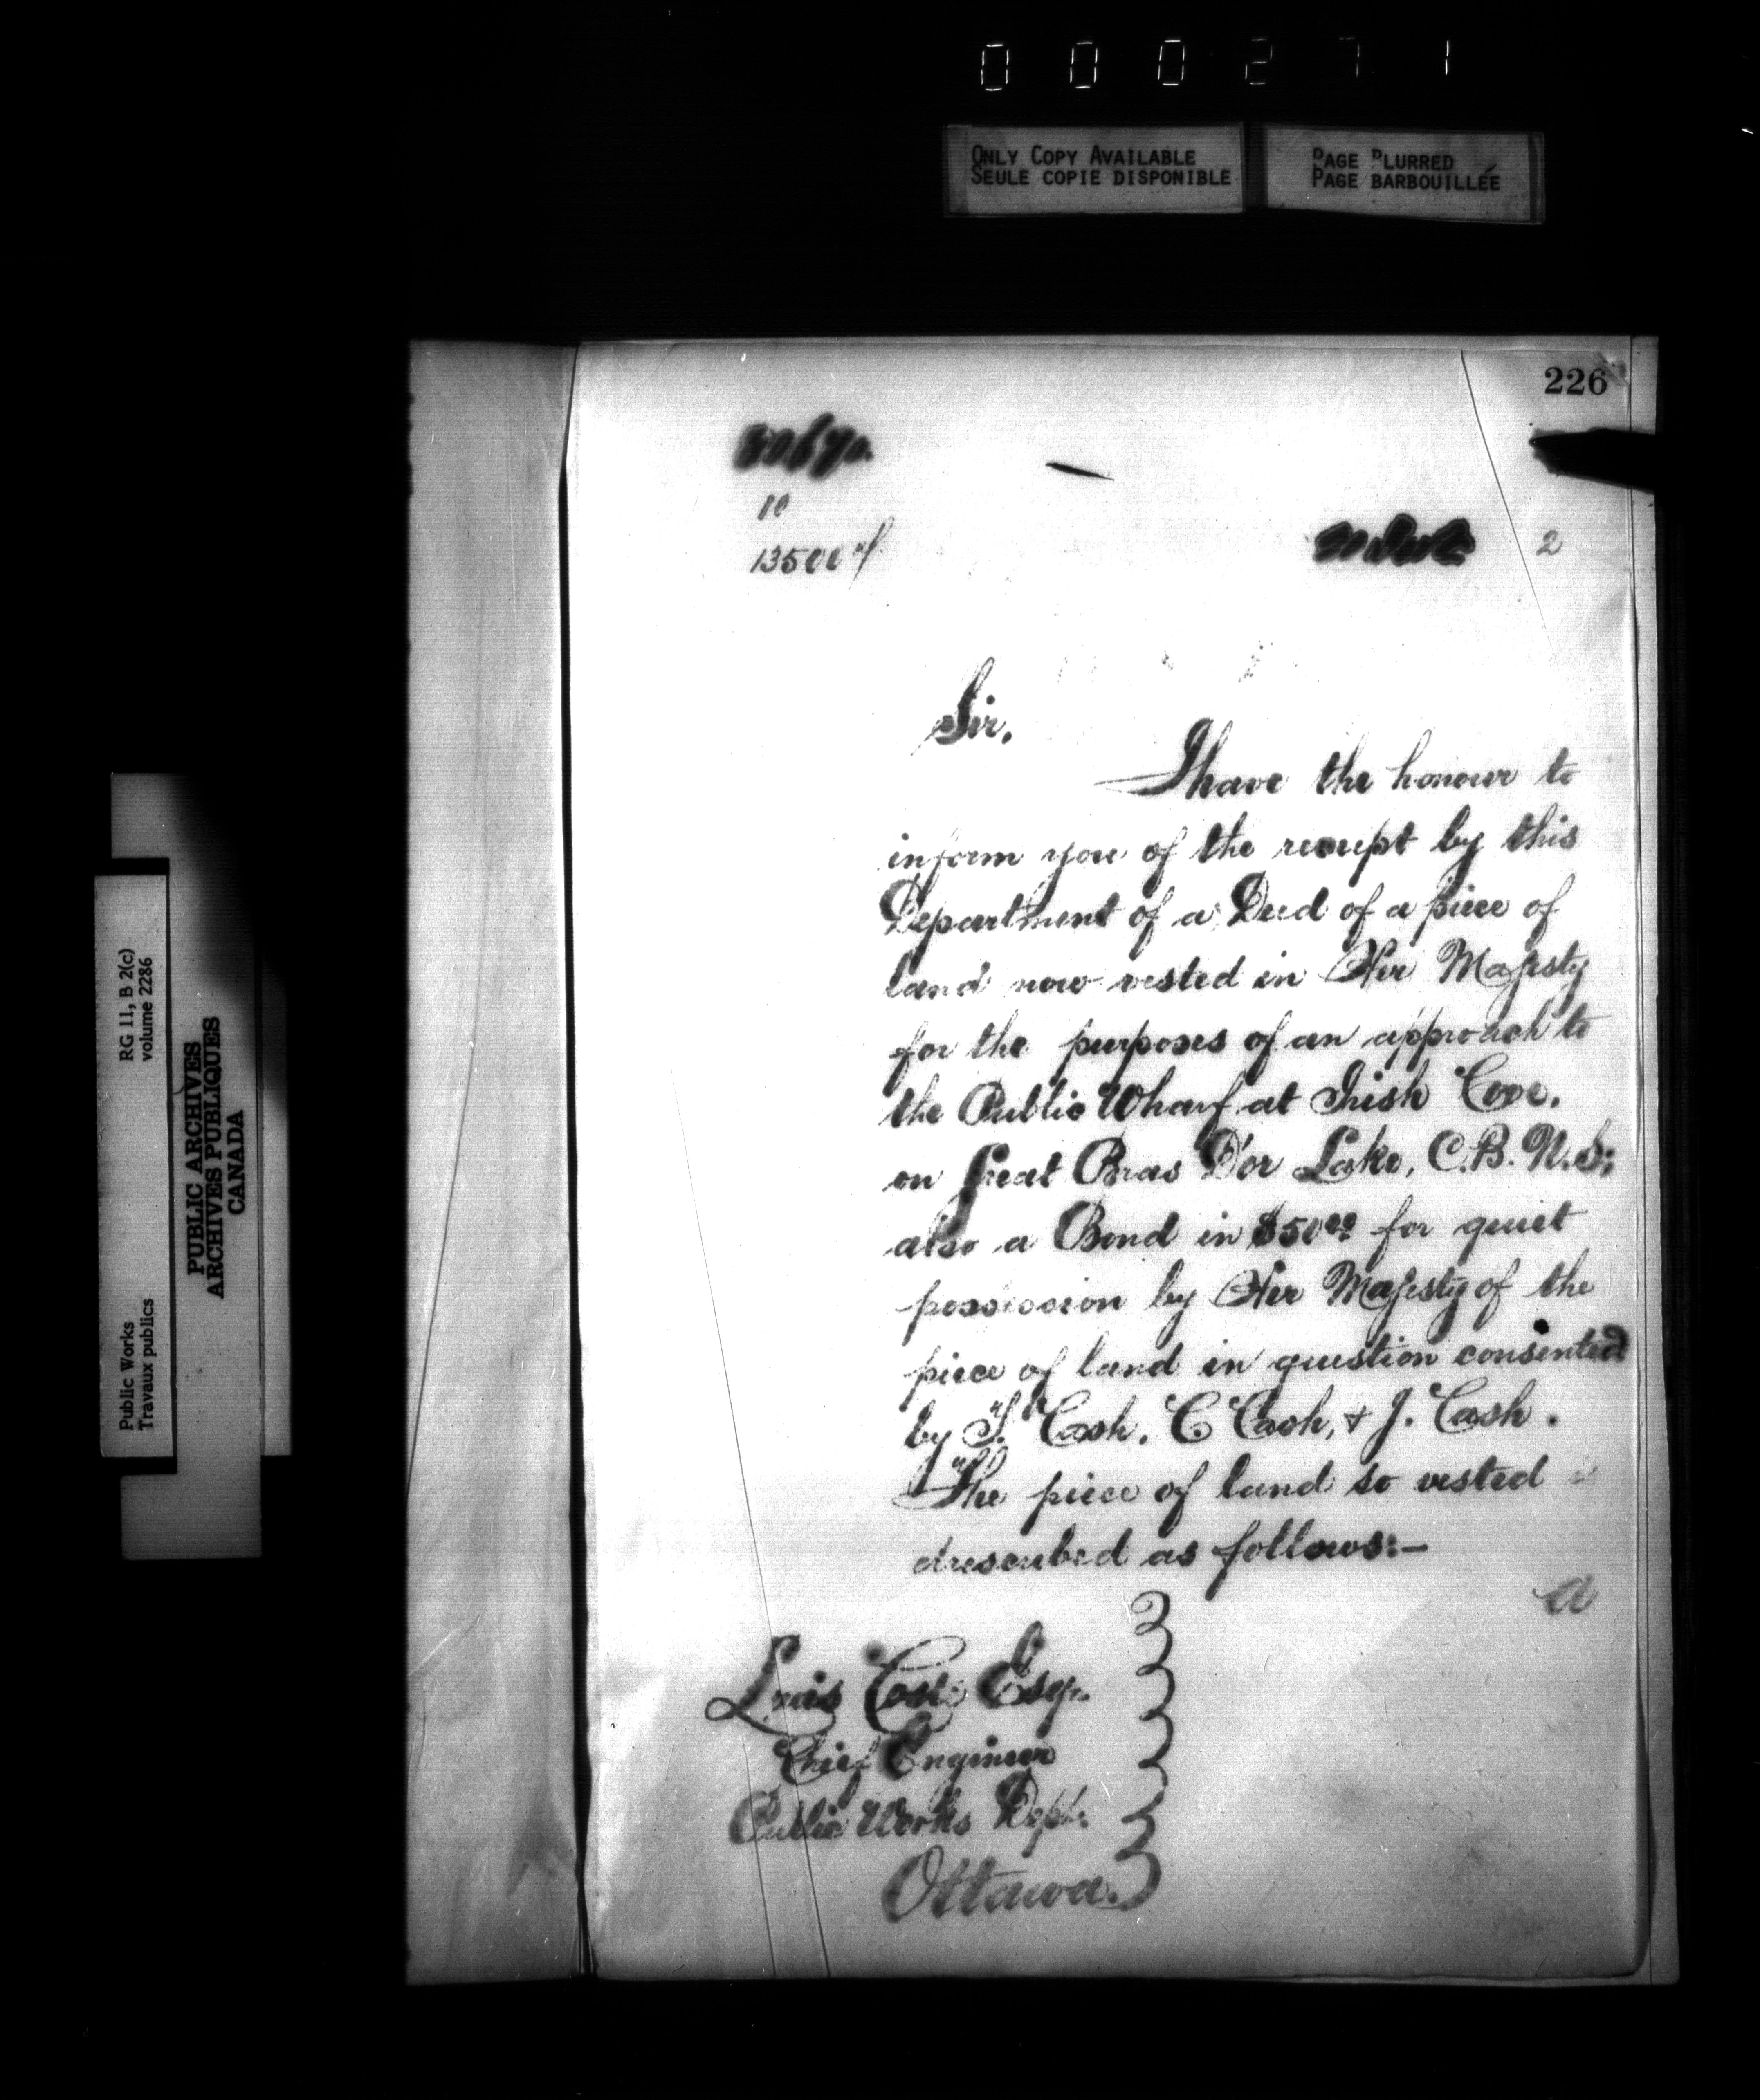 000271
ONLY COPY AVAILABLE
SEULE COPIE DISPONIBLE
PAGE BLURRED
PAGE BARBOUILLÉE
226
10
2
Sir,
I have the honour to
inform you of the receipt by this
Department of a Deed of a piece of
land now vested in Her Majesty
for the purposes of an approach to
the Public Wharf at Irish Cove,
on Great Bras D'or Lake, C.B. N.S;
also a Bond in $50.00 for quiet
possession by Her Majesty of the
piece of land in question consented
by T. Cash, C Cash, & J. Cash.
The piece of land so vested is
described as follows:-
a
Louis Coste Esqr.
Chief Engineer
Public Works Dept.
Ottawa.
RG 11, B 2(c)
volume 2286
Public Works
Travaux publics
PUBLIC ARCHIVES
ARCHIVES PUBLIQUES
CANADA